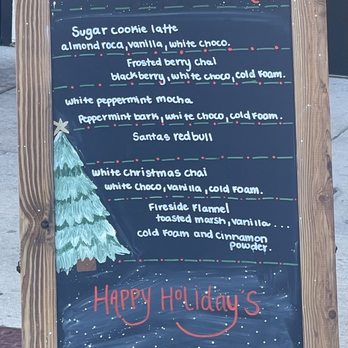 Sugar cookie latte
almond roca, vanilla, white choco.
Frosted berry chai
blackberry, white choco, cold foam.
white peppermint mocha
Peppermint bark, white choco, cold foam.
Santas redbull
white Christmas chai
white choco, vanilla, cold foam.
Fireside Flannel
toasted marsh, vanilla...
cold foam and cinnamon
powder.
HAPPY HOLIDAY'S